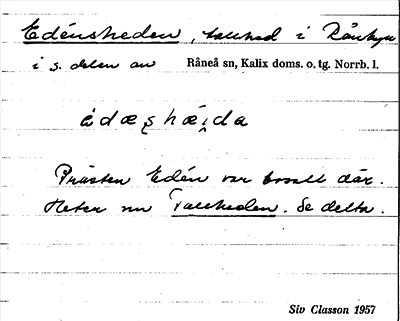 Edénsheden, tallhed i Rånbyn
i s. delen av Råneå sn, Kalix doms. o. tg. Norrb. l.
Prästen Edén var bosatt där.
Heter nu Tallheden. Se detta.
Siv Classon 1957